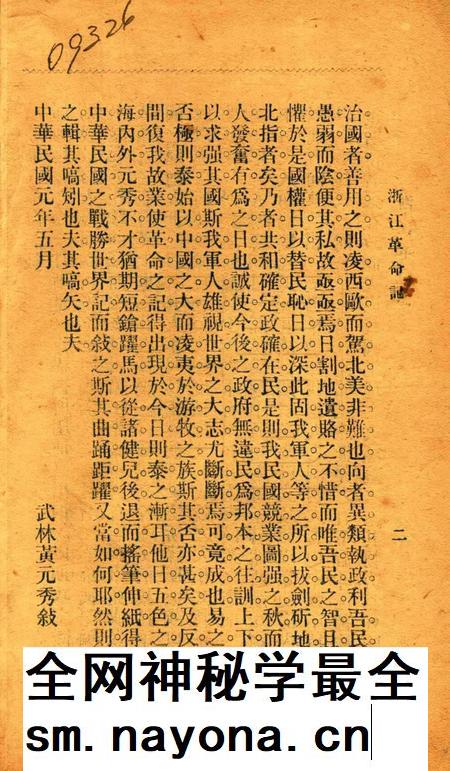 09326
浙江革命記 二
治國者善用之則凌西歐而駕北美非難也向者異類執政利吾民
愚弱而陰便其私故亟亟焉日割地遺賂之不惜而唯吾民之智且
懼於是國權日以替民恥日以深此固我軍人等之所以拔劍斫地
北指者矣乃者共和確定政確在民是則我民國競業圖强之秋而
人發奮有爲之日也誠使今後之政府無違民爲邦本之往訓上下
以求强其國斯我軍人雄視世界之大志尤斷斷焉可竟成也易之
否極則泰始以中國之大而凌夷於游牧之族斯其否亦甚矣及反
間復我故業使革命之記得出現於今日則泰之漸耳他日五色之
海內外元秀不才猶期短鎗躍馬以從諸健兒後退而搦筆伸紙得
中華民國之戰勝世界記而敍之斯其曲踊距躍又當如何耶然則
之輯其嚆矧也夫其嚆矢也夫
中華民國元年五月 武林黃元秀敍
全网神秘学最全
sm.nayona.cn